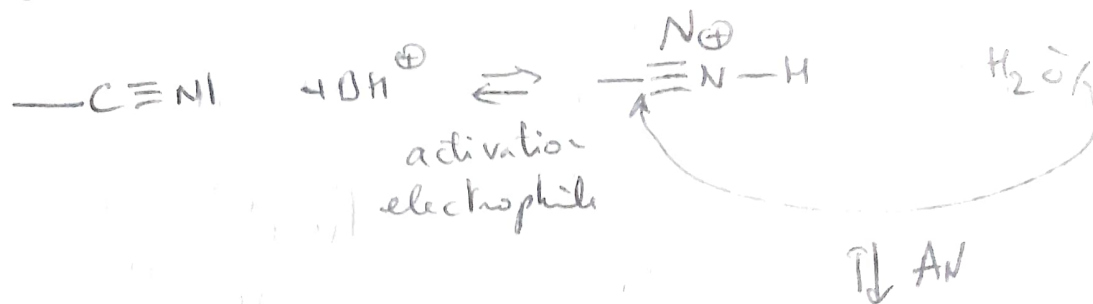 N⊕
—C≡N| +BH⊕ ⇌ —≡N—H H₂O
activation
electrophile
⇅ AN